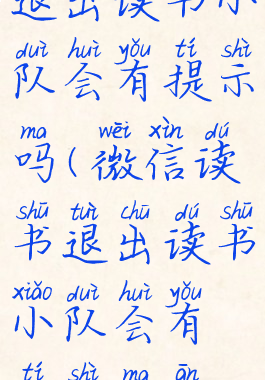 退出读书小
duì huì yǒu tí shì
队会有提示
ma wēi xìn dú
吗(微信读
shū tuì chū dú shū
书退出读书
xiǎo duì huì yǒu
小队会有
tí shì ma ān